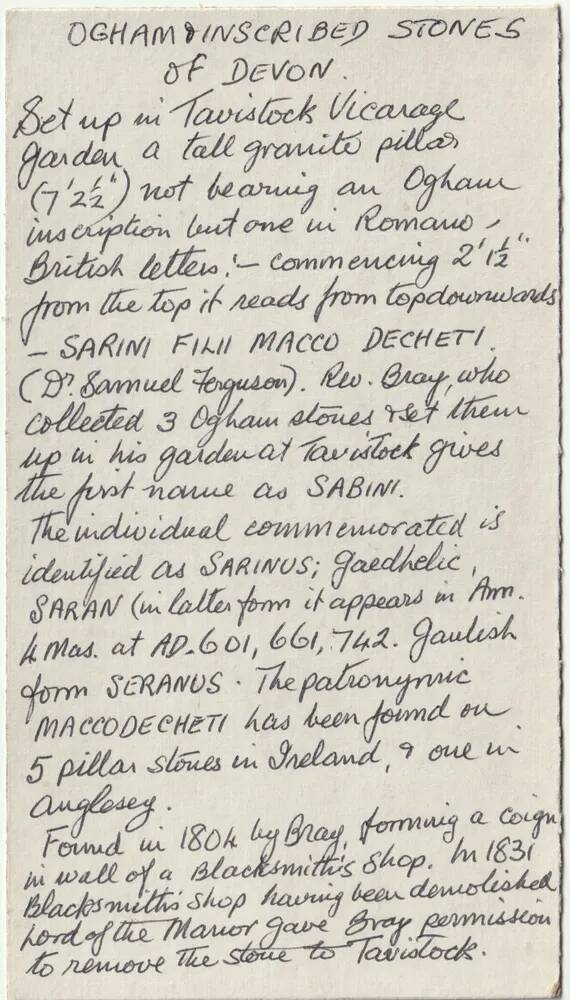 OGHAM & INSCRIBED STONES
OF DEVON.
Set up in Tavistock Vicarage
Garden a tall granite pillar
(7'2½") not bearing an Ogham
inscription but one in Romano-
British letters:- commencing 2'1½"
from the top it reads from top downwards
- SARINI FILII MACCO DECHETI.
(Dr Samuel Ferguson). Rev. Bray, who
collected 3 Ogham stones & set them
up in his garden at Tavistock gives
the first name as SABINI.
The individual commemorated is
identified as SARINUS; Gaedhelic,
SARAN (in latter form it appears in Ann.
4 Mas. at AD. 601, 661, 742. Gaulish
form SERANUS. The patronymic
MACCODECHETI has been found on
5 pillar stones in Ireland, & one in
Anglesey.
Found in 1804 by Bray, forming a coign
in wall of a Blacksmith's Shop. In 1831
Blacksmith's shop having been demolished
Lord of the Manor gave Bray permission
to remove the stone to Tavistock.